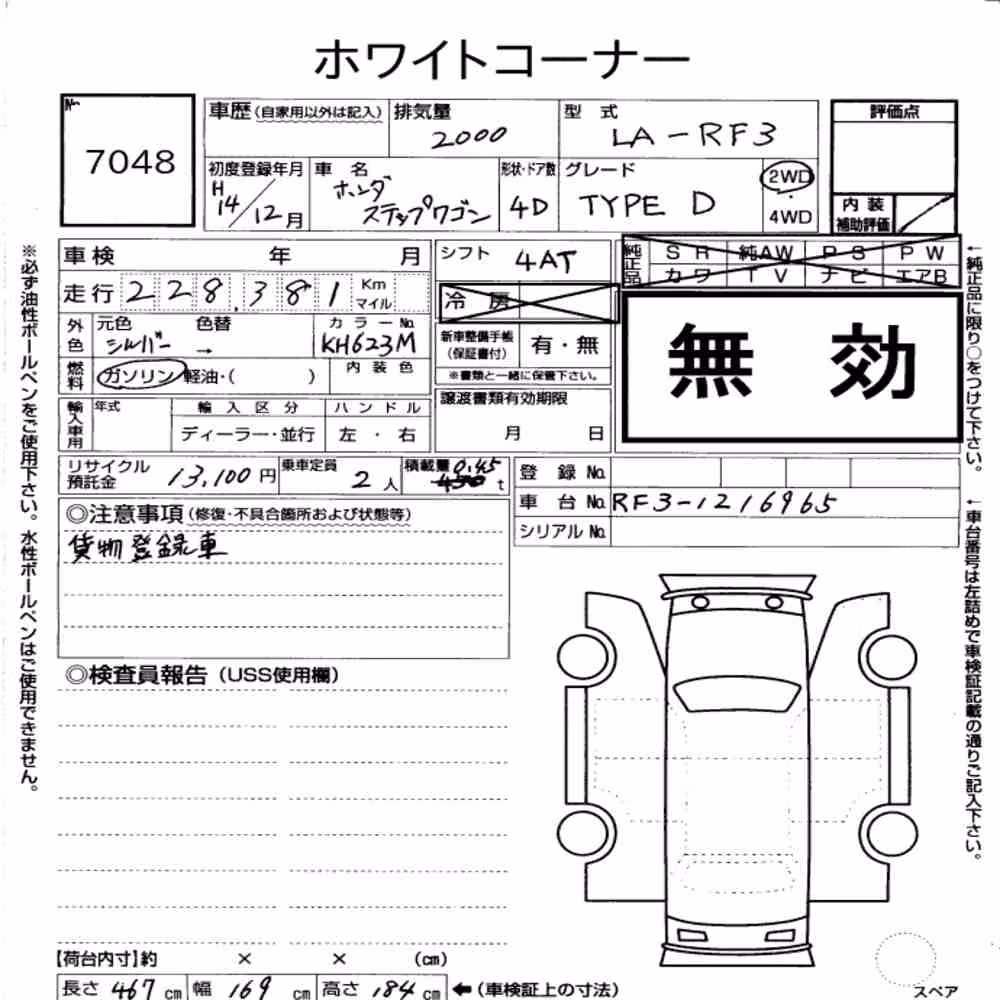 ホワイトコーナー
No.
7048
車歴 (自家用以外は記入)
排気量
2000
型 式
LA-RF3
評価点
初度登録年月
H14/12月
車 名
ホンダ
ステップワゴン
形状・ドア数
4D
グレード
TYPE D
2WD
4WD
内 装
補助評価
車検 年 月
シフト
4AT
純正品
SR 純AW PS PW
カワ TV ナビ エアB
走行 228,381 Km
マイル
冷 房
無 効
外色
元色 色替
シルバー →
カラーNo.
KH623M
新車整備手帳
(保証書付)
有・無
※書類と一緒に保管下さい。
燃料
ガソリン 軽油・( )
内 装 色
輸入車用
年式
輸 入 区 分
ディーラー・並行
ハ ン ド ル
左 ・ 右
譲渡書類有効期限
月 日
リサイクル
預託金
13,100円
乗車定員
2人
積載量
0.45
450 t
登 録 No.
車 台 No. RF3-1216965
シリアル No.
◎注意事項 (修復・不具合箇所および状態等)
貨物登録車
◎検査員報告 (USS使用欄)
【荷台内寸】約 × × (cm)
長さ 467 cm 幅 169 cm 高さ 184 cm ←(車検証上の寸法)
スペア
※必ず油性ボールペンをご使用下さい。水性ボールペンはご使用できません。
←純正品に限り○をつけて下さい。
←車台番号は左詰めで車検証記載の通りご記入下さい。